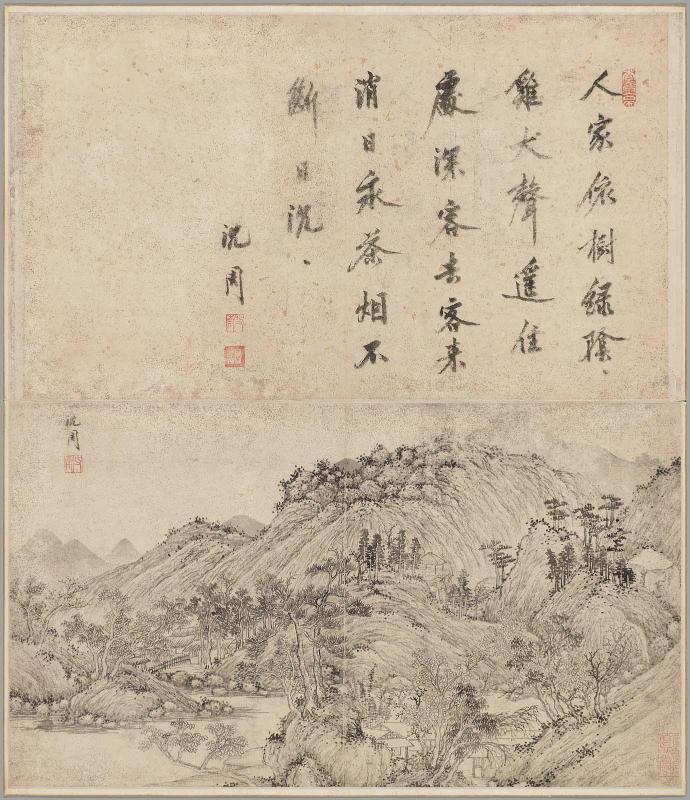 人家依樹綠陰〻
雞犬聲遥住
處深客去客来
消日永茶烟不
斷日沉〻
沈周
沈周